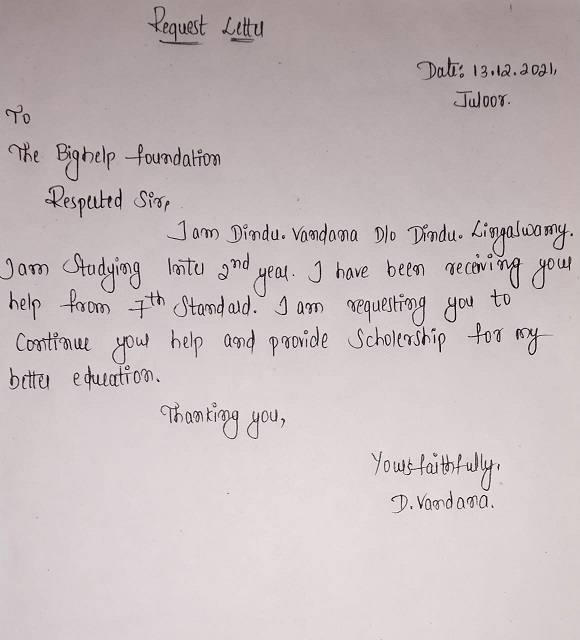 Request Letter
Date: 13.12.2021,
Juloor.
To
The Bighelp foundation
Respected Sir,
I am Dindu. Vandana D/o Dindu. Lingaswamy.
I am Studying Inter 2nd year. I have been receiving your
help from 7th Standard. I am requesting you to
Continue your help and provide Scholership for my
better education.
Thanking you,
Yours faithfully.
D. Vandana.